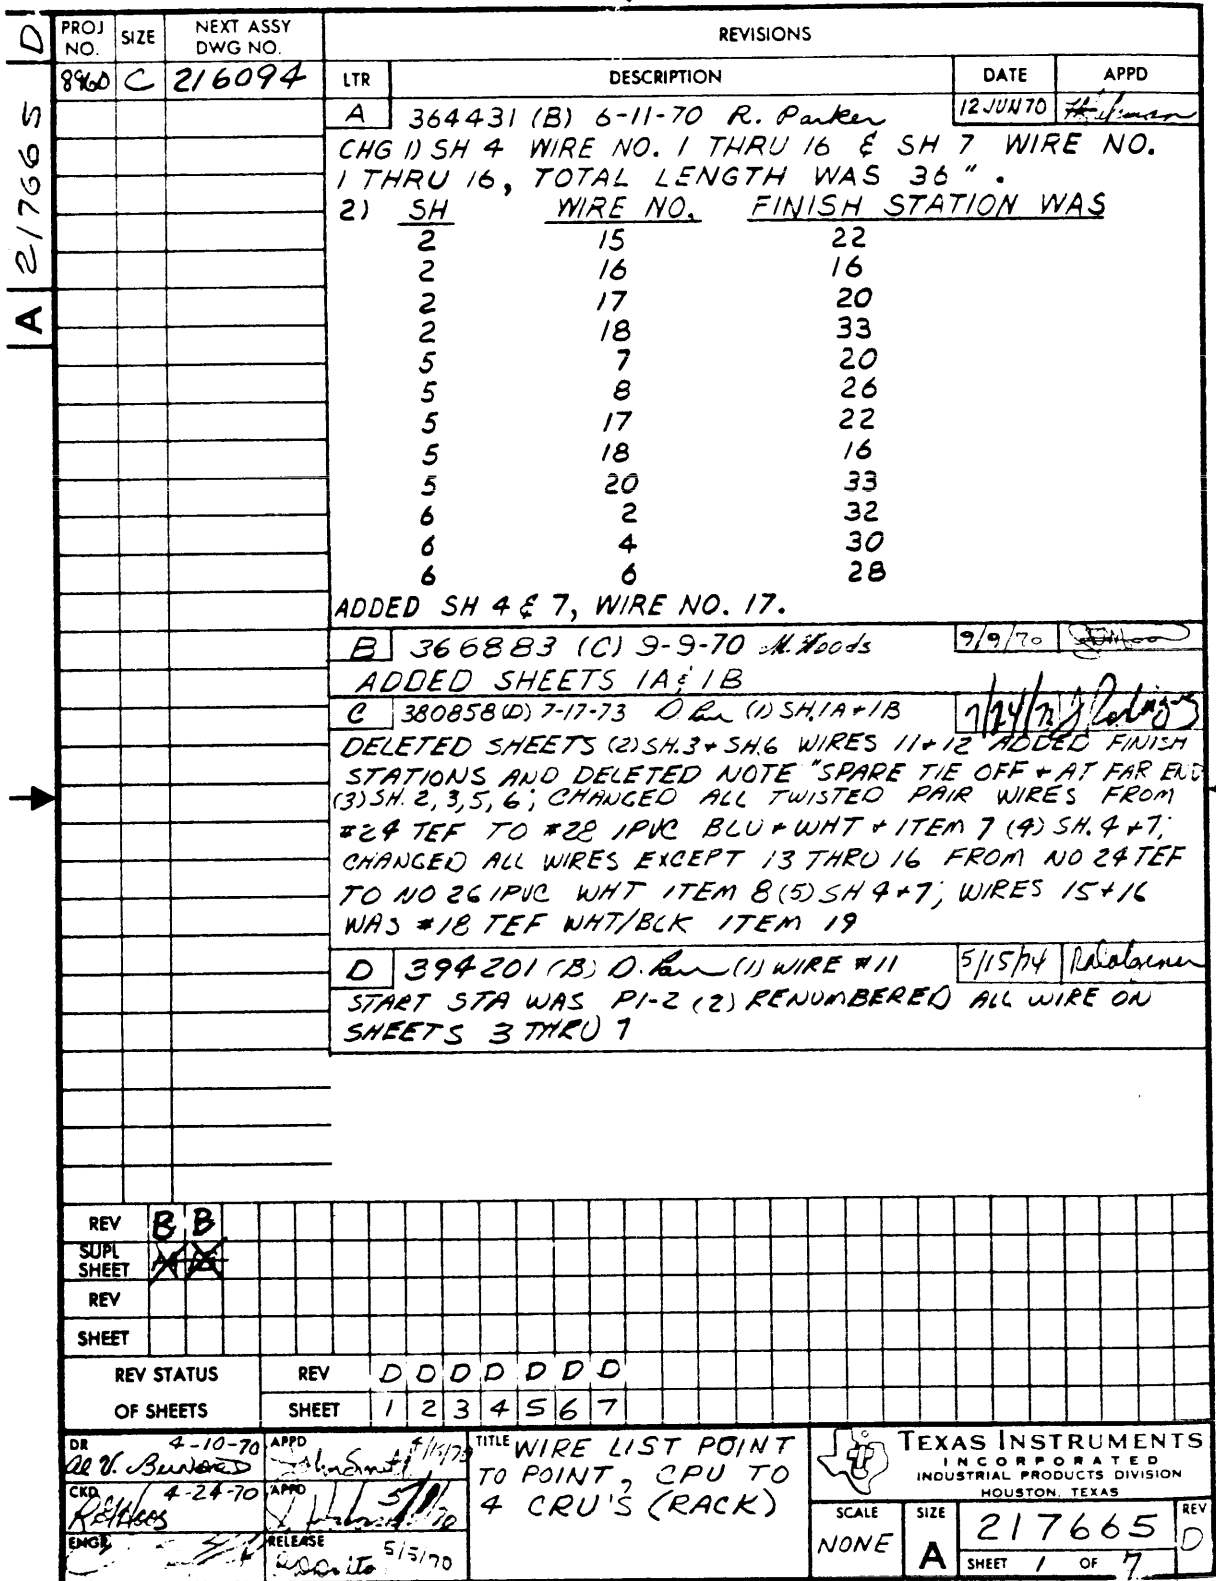 A 217665 D
PROJ NO. SIZE NEXT ASSY DWG NO.
8960 C 216094
REVISIONS
LTR DESCRIPTION DATE APPD
A 364431 (B) 6-11-70 R. Parker 12 JUN 70
CHG 1) SH 4 WIRE NO. 1 THRU 16 & SH 7 WIRE NO.
1 THRU 16, TOTAL LENGTH WAS 36".
2) SH WIRE NO. FINISH STATION WAS
2 15 22
2 16 16
2 17 20
2 18 33
5 7 20
5 8 26
5 17 22
5 18 16
5 20 33
6 2 32
6 4 30
6 6 28
ADDED SH 4 & 7, WIRE NO. 17.
B 366883 (C) 9-9-70 M. Woods 9/9/70
ADDED SHEETS 1A & 1B
C 380858 (D) 7-17-73 (1) SH. 1A + 1B
DELETED SHEETS (2) SH.3 + SH.6 WIRES 11+12 ADDED FINISH
STATIONS AND DELETED NOTE "SPARE TIE OFF + AT FAR END
(3) SH. 2, 3, 5, 6; CHANGED ALL TWISTED PAIR WIRES FROM
#24 TEF TO #28 IPVC BLU + WHT + ITEM 7 (4) SH. 4 + 7;
CHANGED ALL WIRES EXCEPT 13 THRU 16 FROM NO 24 TEF
TO NO 26 IPVC WHT ITEM 8 (5) SH 4+7; WIRES 15+16
WAS #18 TEF WHT/BLK ITEM 19
D 394201 (B) (1) WIRE #11 5/15/74
START STA WAS P1-2 (2) RENUMBERED ALL WIRE ON
SHEETS 3 THRU 7
REV B B
SUPL SHEET
REV
SHEET
REV STATUS OF SHEETS
REV D D D D D D D
SHEET 1 2 3 4 5 6 7
DR 4-10-70
CKD 4-24-70
ENGR
APPD
APPD
RELEASE 5/5/70
TITLE WIRE LIST POINT
TO POINT, CPU TO
4 CRU'S (RACK)
TEXAS INSTRUMENTS
INCORPORATED
INDUSTRIAL PRODUCTS DIVISION
HOUSTON, TEXAS
SCALE NONE
SIZE A
217665
REV D
SHEET 1 OF 7